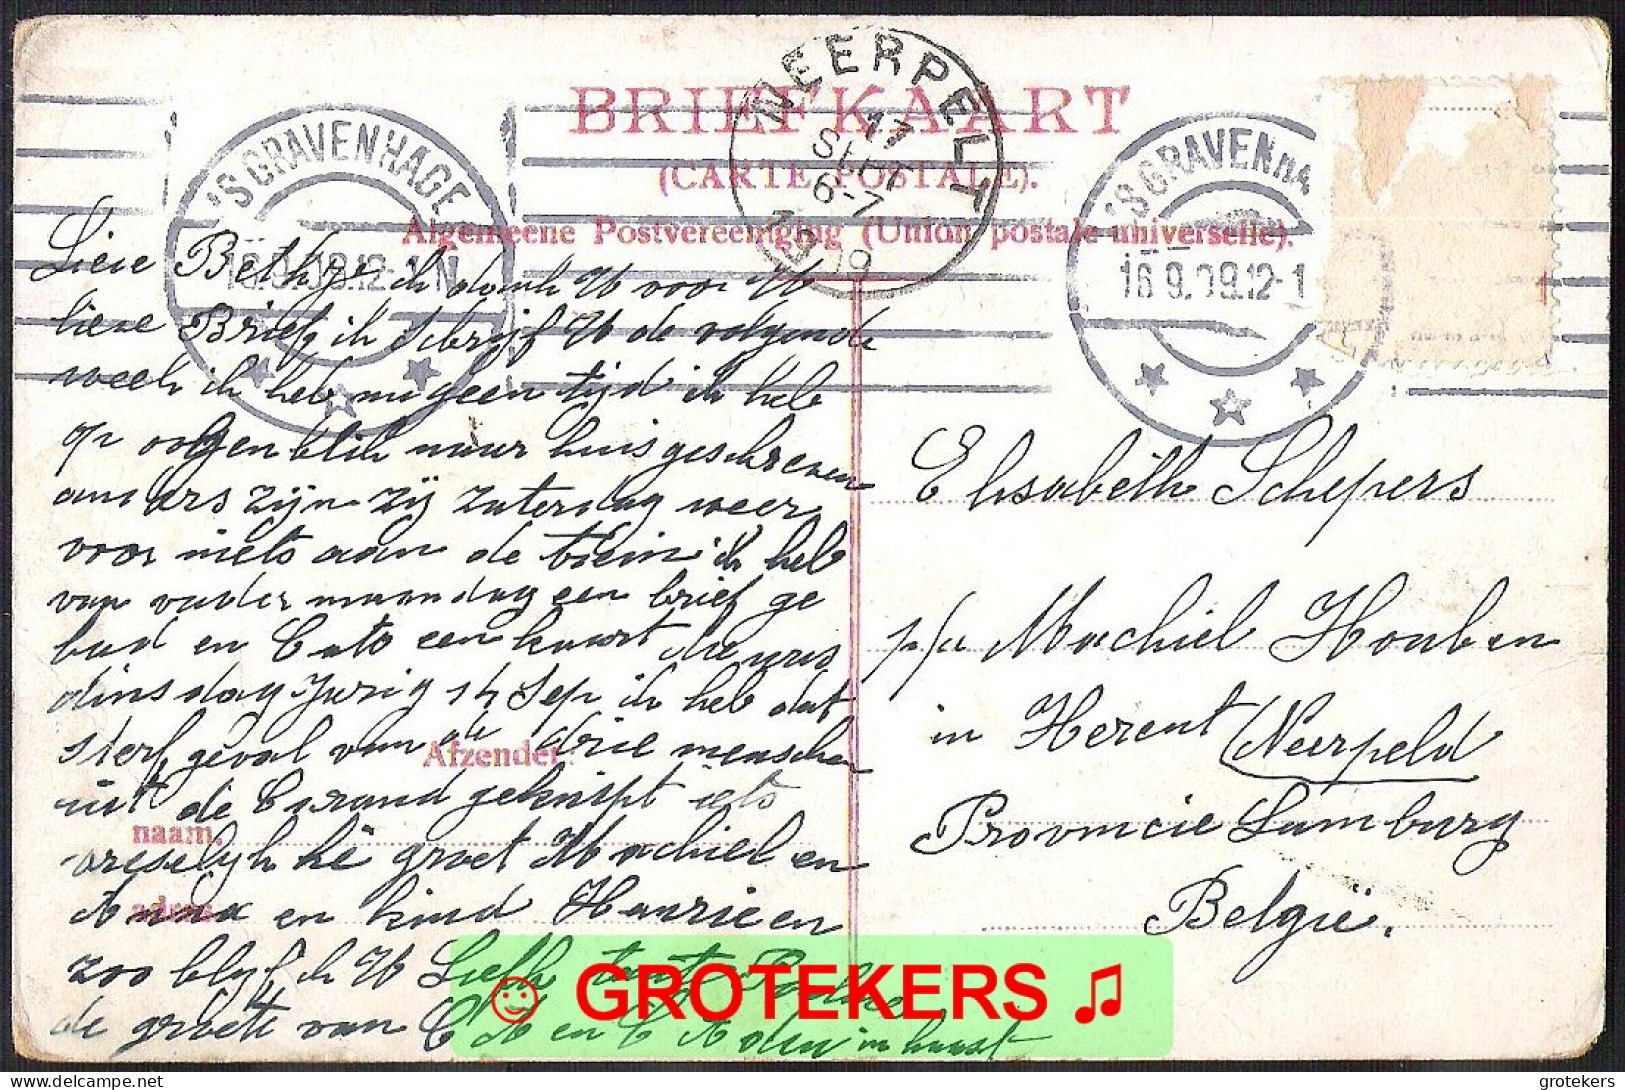 BRIEFKAART
(CARTE POSTALE).
Algemeene Postvereeniging (Union postale universelle).
NEERPELT
17
SEPT
6-7
19
'S GRAVENHAGE
16.9.09.12-1 N
'S GRAVENHA
16.9.09.12-1
Lieve Bethje ik dank U voor U
lieve Brief, ik schrijf U de volgende
week ik heb nu geen tijd ik heb
op oogenblik naar huis geschreven
anders zijn zij zaterdag weer
voor niets aan de trein ik heb
van vader maandag een brief ge
had en Cato een kaart
dinsdag Sep ik heb dat
sterfgeval van de drie menschen
uit de Courand geknipt iets
vreselijk hè groet Machiel en
Anna en kind Harrie en
zoo blijf ik U Liefh tante
de groete van C A en C A in haast
Afzender:
naam,
adres
Elisabeth Schepers
p/a Machiel Houben
in Herent (Neerpeld
Provincie Limburg
België.
☺ GROTEKERS ♫
https://www.delcampe.net
grotekers